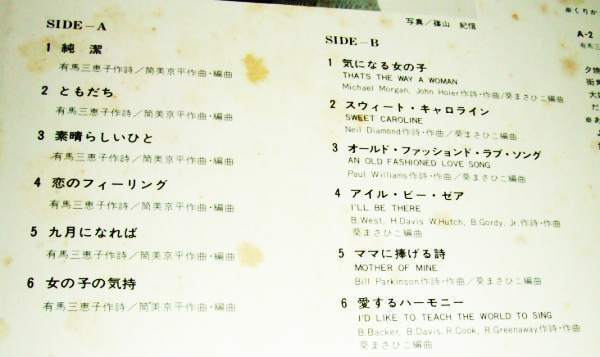 写真／篠山 紀信
SIDE－A
1 純潔
有馬三恵子作詩／筒美京平作曲・編曲
2 ともだち
有馬三恵子作詩／筒美京平作曲・編曲
3 素晴らしいひと
有馬三恵子作詩／筒美京平作曲・編曲
4 恋のフィーリング
有馬三恵子作詩／筒美京平作曲・編曲
5 九月になれば
有馬三恵子作詩／筒美京平作曲・編曲
6 女の子の気持
有馬三恵子作詩／筒美京平作曲・編曲
SIDE－B
1 気になる女の子
THATS THE WAY A WOMAN
Michael Morgan, John Hoier作詩・作曲/葵まさひこ編曲
2 スウィート・キャロライン
SWEET CAROLINE
Neil Diamond作詩・作曲／葵まさひこ編曲
3 オールド・ファッションド・ラブ・ソング
AN OLD FASHIONED LOVE SONG
Paul Williams作詩・作曲／葵まさひこ編曲
4 アイル・ビー・ゼア
I'LL BE THERE
B.West, H.Davis W.Hutch, B.Gordy, Jr.作詩・作曲
葵まさひこ編曲
5 ママに捧げる詩
MOTHER OF MINE
Bill Parkinson作詩・作曲／葵まさひこ編曲
6 愛するハーモニー
I'D LIKE TO TEACH THE WORLD TO SING
B.Backer, B.Davis, R.Cook, R.Greenaway作詩・作曲
葵まさひこ編曲
※くりか
A-2
有馬三
夕焼
街角
大切
だ
※あ